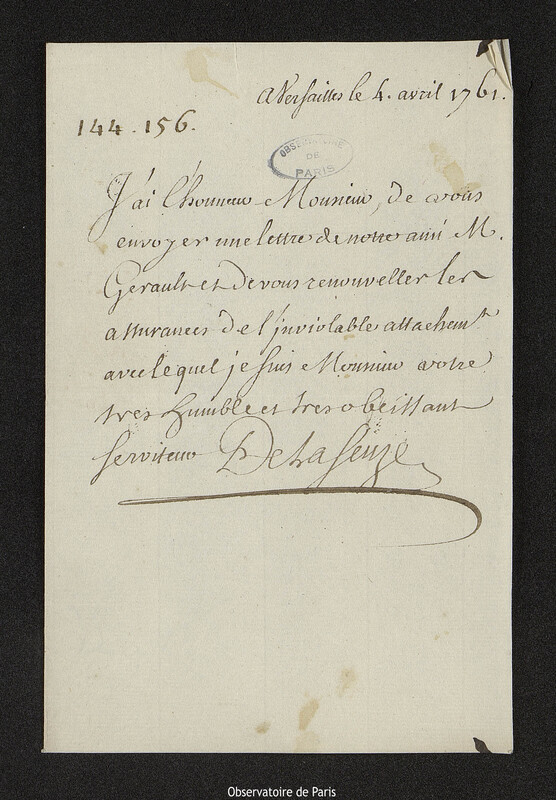 a Versailles le 4. avril 1761.
144.156.
OBSERVATOIRE
DE
PARIS
J'ai l'honneur Monsieur, de vous
envoyer une lettre de notre ami M.
Gerault et de vous renouveller les
assurances de l'inviolable attachemt
avec lequel je suis Monsieur votre
tres humble et tres obeissant
serviteur De La Seuze
Observatoire de Paris